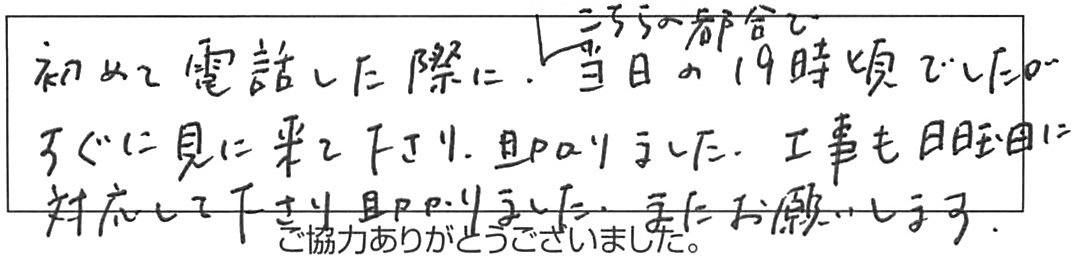 こちらの都合で
初めて電話した際に、当日の19時頃でしたが
すぐに見に来て下さり、助かりました。工事も日曜日に
対応して下さり助かりました。またお願いします。
ご協力ありがとうございました。